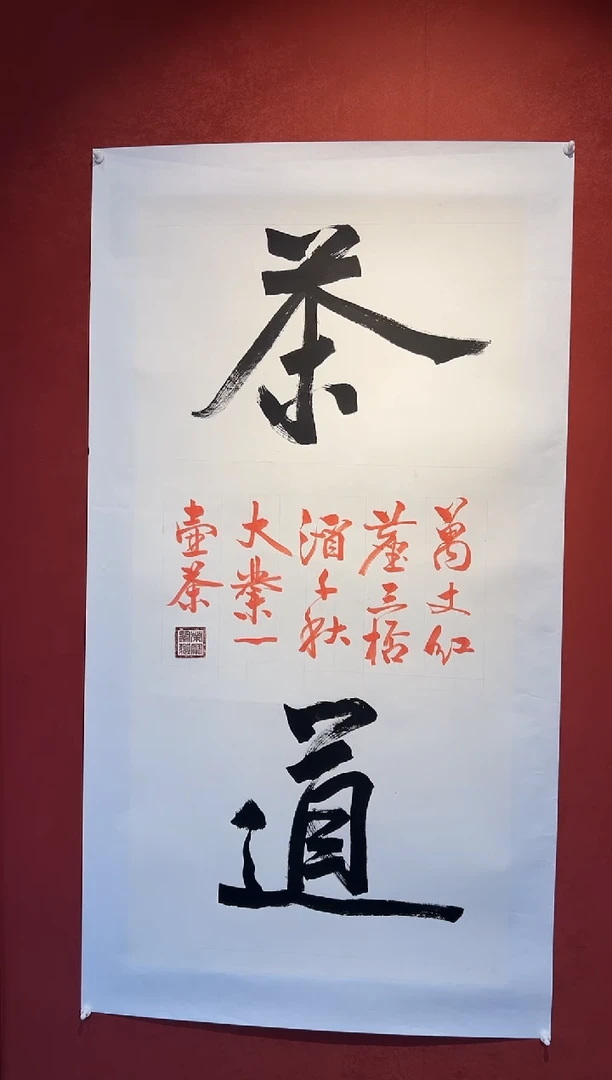 茶
萬丈紅
塵三杯
酒千秋
大業一
壺茶
道